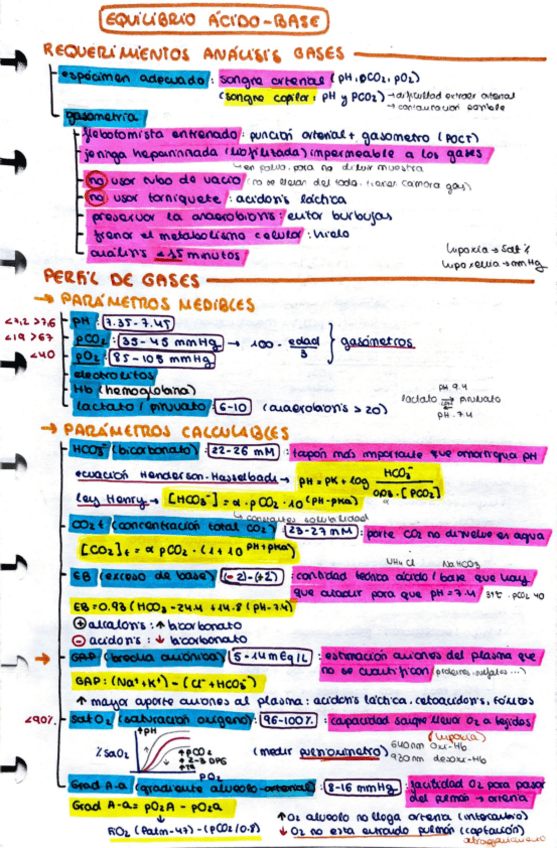 EQUILIBRIO ÁCIDO-BASE
REQUERIMIENTOS ANÁLISIS GASES
espécimen adecuado: sangre arterial (pH, pCO2, pO2)
(sangre capilar: pH y PCO2) → dificultad extraer arterial
→ contaminación posible
gasometría
flebotomista entrenado: punción arterial + gasómetro (POCT)
jeringa heparinizada (liofilizada) impermeable a los gases
en polvo para no diluir muestra
no usar tubo de vacío (no se llenan del todo, tienen cámara gas)
no usar torniquete: acidosis láctica
preservar la anaerobiosis: evitar burbujas
frenar el metabolismo celular: hielo
análisis <15 minutos
hipoxia → sat %
hipoxemia → mmHg
PERFIL DE GASES
→ PARÁMETROS MEDIBLES
<7,2 >7,6 pH: 7.35-7.45
<19 >67 pCO2: 35-45 mmHg
<40 pO2: 85-105 mmHg → 100 - edad/3 } gasómetros
electrolitos
Hb (hemoglobina)
lactato / piruvato: 6-10 (anaerobiosis >20)
pH 9.4
lactato ⇄ piruvato
pH 7.4
→ PARÁMETROS CALCULABLES
HCO3⁻ (bicarbonato): 22-26 mM: tapón más importante que amortigua pH
ecuación Henderson-Hasselbach → pH = pK + log HCO3⁻ / 0,03 · [PCO2]
α
Ley Henry → [HCO3⁻] = α · pCO2 · 10^(pH-pKa)
constantes solubilidad
CO2t (concentración total CO2) 23-27 mM: parte CO2 no disuelve en agua
[CO2]t = α pCO2 · (1 + 10^pH+pKa)
NH4Cl NaHCO3
EB (exceso de base) (-2)-(+2): cantidad teórica ácido/base que hay
que añadir para que pH=7.4 37º, pCO2 40
EB = 0.93 (HCO3 - 24.4 + 14.8 (pH-7.4)
⊕ alcalosis: ↑ bicarbonato
⊖ acidosis: ↓ bicarbonato
→ GAP (brecha aniónica) 5-14 mEq/L: estimación aniones del plasma que
no se cuantifican (proteínas, sulfatos...)
GAP: (Na⁺+K⁺) - (Cl⁻+HCO3⁻)
↑ mayor aporte aniones al plasma: acidosis láctica, cetoacidosis, tóxicos
<90% sat O2 (saturación oxígeno) 96-100%: capacidad sangre llevar O2 a tejidos
(hipoxia)
↑pH
% SaO2
↑ pCO2
↑ 2-3 DPG
↑ Tª
PO2
(medir pulsioxímetro) 640nm oxi-Hb
920nm desoxi-Hb
Grad A-a (gradiente alveolo-arterial): 8-16 mmHg: facilidad O2 para pasar
del pulmón → arteria
Grad A-a = pO2A - pO2a
FiO2 (Patm-47) - (pCO2/0.8)
↑ O2 alveolo no llega arteria (intercambio)
↓ O2 no está entrando pulmón (captación)